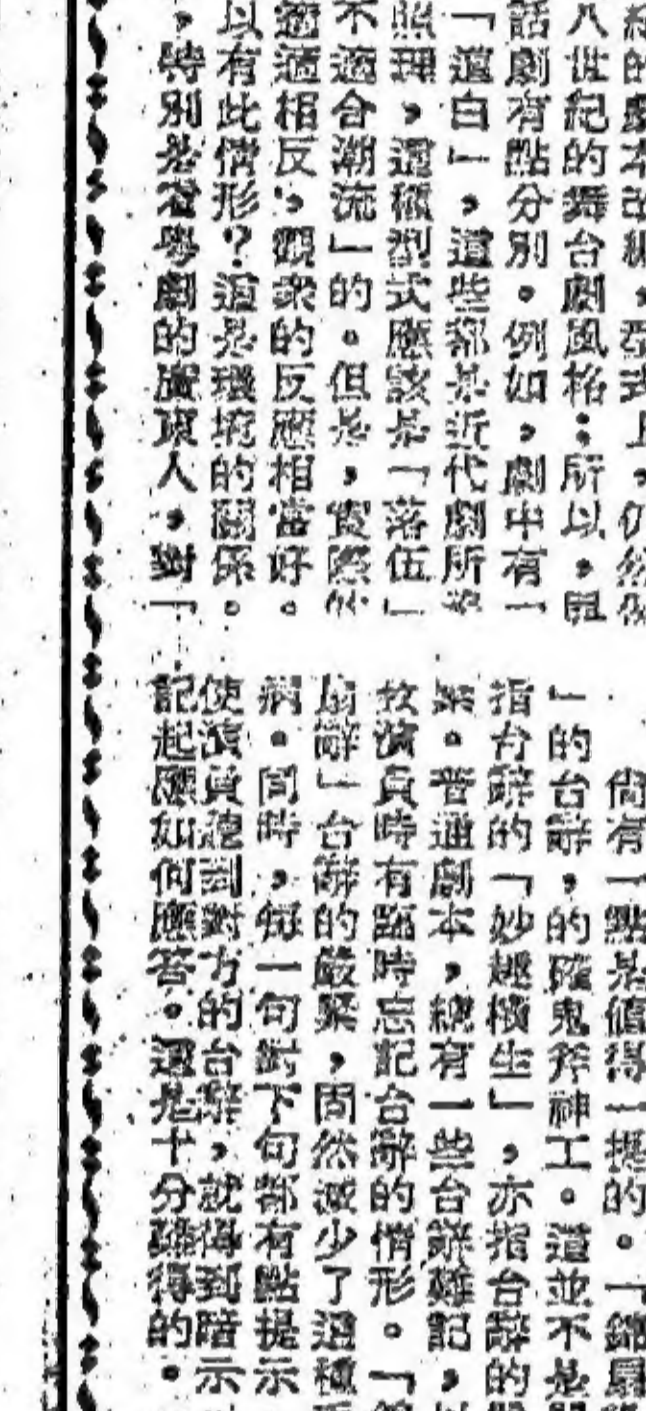 的劇本改編，型式上，仍然
八世紀的舞台劇風格；所以，與
話劇有點分別。例如，劇中有一
「道白」，這些都是近代劇所
照理，這種型式應該是「落伍」
不適合潮流」的。但是，實際
適適相反，觀衆的反應相當好。
以有此情形？這是環境的關係。
，特別是看粵劇的廣東人，對「
尙有一點是値得一提的。「錦扇
」的台辭，的確鬼斧神工。這並不是
指台辭的「妙趣橫生」，亦指台辭的
。普通劇本，總有一些台辭難記，以
故演員時有臨時忘記台辭的情形。「
扇辭」台辭的嚴緊，固然減少了這種
病。同時，每一句對下句都有點提示
使演員聽到對方的台辭，就得到暗示
記起應如何應答。這是十分難得的。